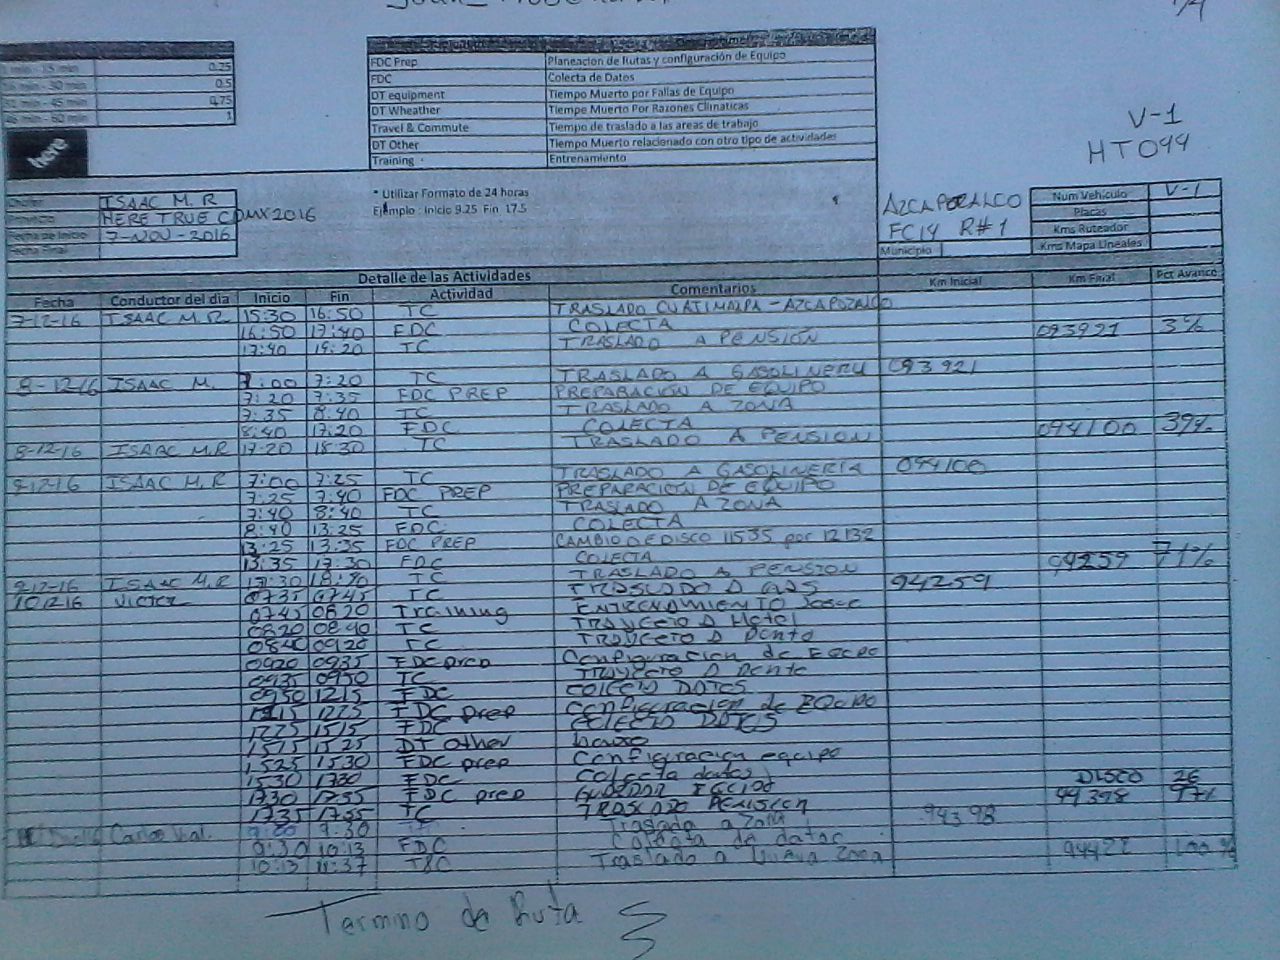 V-1
HT044
0.25
0.5
0,75
1
FDC Prep Planeacion de Rutas y configuración de Equipo
FDC Colecta de Datos
DT equipment Tiempo Muerto por Fallas de Equipo
DT Wheather Tiempo Muerto Por Razones Climaticas
Travel & Commute Tiempo de traslado a las areas de trabajo
DT Other Tiempo Muerto relacionado con otro tipo de actividades
Training Entrenamiento
here
* Utilizar Formato de 24 horas
Ejmplo : Inicio 9.25 Fin 17.5
ISAAC M. R
HERE TRUE CDMX 2016
Fecha de Inicio 7-NOV-2016
Fecha Final
AZCAPOZALCO
FC14 R#1
Municipio
Num Vehículo V-1
Placas
Kms Ruteador
Kms Mapa Lineales
Detalle de las Actividades
Fecha Conductor del dia Inicio Fin Actividad Comentarios Km Inicial Km Final Pct Avance
7-12-16 ISAAC M.R 15:30 16:50 TC TRASLADO CUAJIMALPA-AZCAPOZALCO
16:50 17:40 FDC COLECTA 093921 3%
17:40 19:20 TC TRASLADO A PENSIÓN
8-12-16 ISAAC M. 7:00 7:20 TC TRASLADO A GASOLINERU 093921
7:20 7:35 FDC PREP PREPARACIÓN DE EQUIPO
7:35 8:40 TC TRASLADO A ZONA
8:40 17:20 FDC COLECTA 094100 39%
8-12-16 ISAAC M.R 17:20 18:30 TC TRASLADO A PENSION
9-12-16 ISAAC M.R 7:00 7:25 TC TRASLADO A GASOLINERÍA 094100
7:25 7:40 FDC PREP PREPARACIÓN DE EQUIPO
7:40 8:40 TC TRASLADO A ZONA
8:40 13:25 FDC COLECTA
13:25 13:35 FDC PREP CAMBIO DE DISCO 11535 por 12132
13:35 17:30 FDC COLECTA 94259 71%
9-12-16 ISAAC M.R 17:30 18:40 TC TRASLADO A PENSION
10 12 16 Victor 0735 0745 TC TRASLADO A GAS 94259
0745 0820 Training ENTRENAMIENTO Josue
0820 0840 TC TRAYECTO A Hotel
0840 0920 TC TRAYECTO A Punto
0920 0935 FDC prep Configuracion de EQUIPO
0935 0950 TC TRAYECTO A Punto
0950 1215 FDC COLECTO DATOS
1215 1225 FDC prep Configuracion de EQUIPO
1225 1515 FDC COLECTO DATOS
1515 1525 DT other
1525 1530 FDC prep Configuracion equipo
1530 1730 FDC Colecta datos DISCO 26
1730 1735 FDC prep 94398 97%
1735 1755 TC TRASLADO PENSION
Carlos 9:00 9:30 Traslado a Zona 94398
9:30 10:13 FDC Colecta de datos
10:13 11:37 T&C Traslado a Nueva Zona 94422 100%
Termino de Ruta